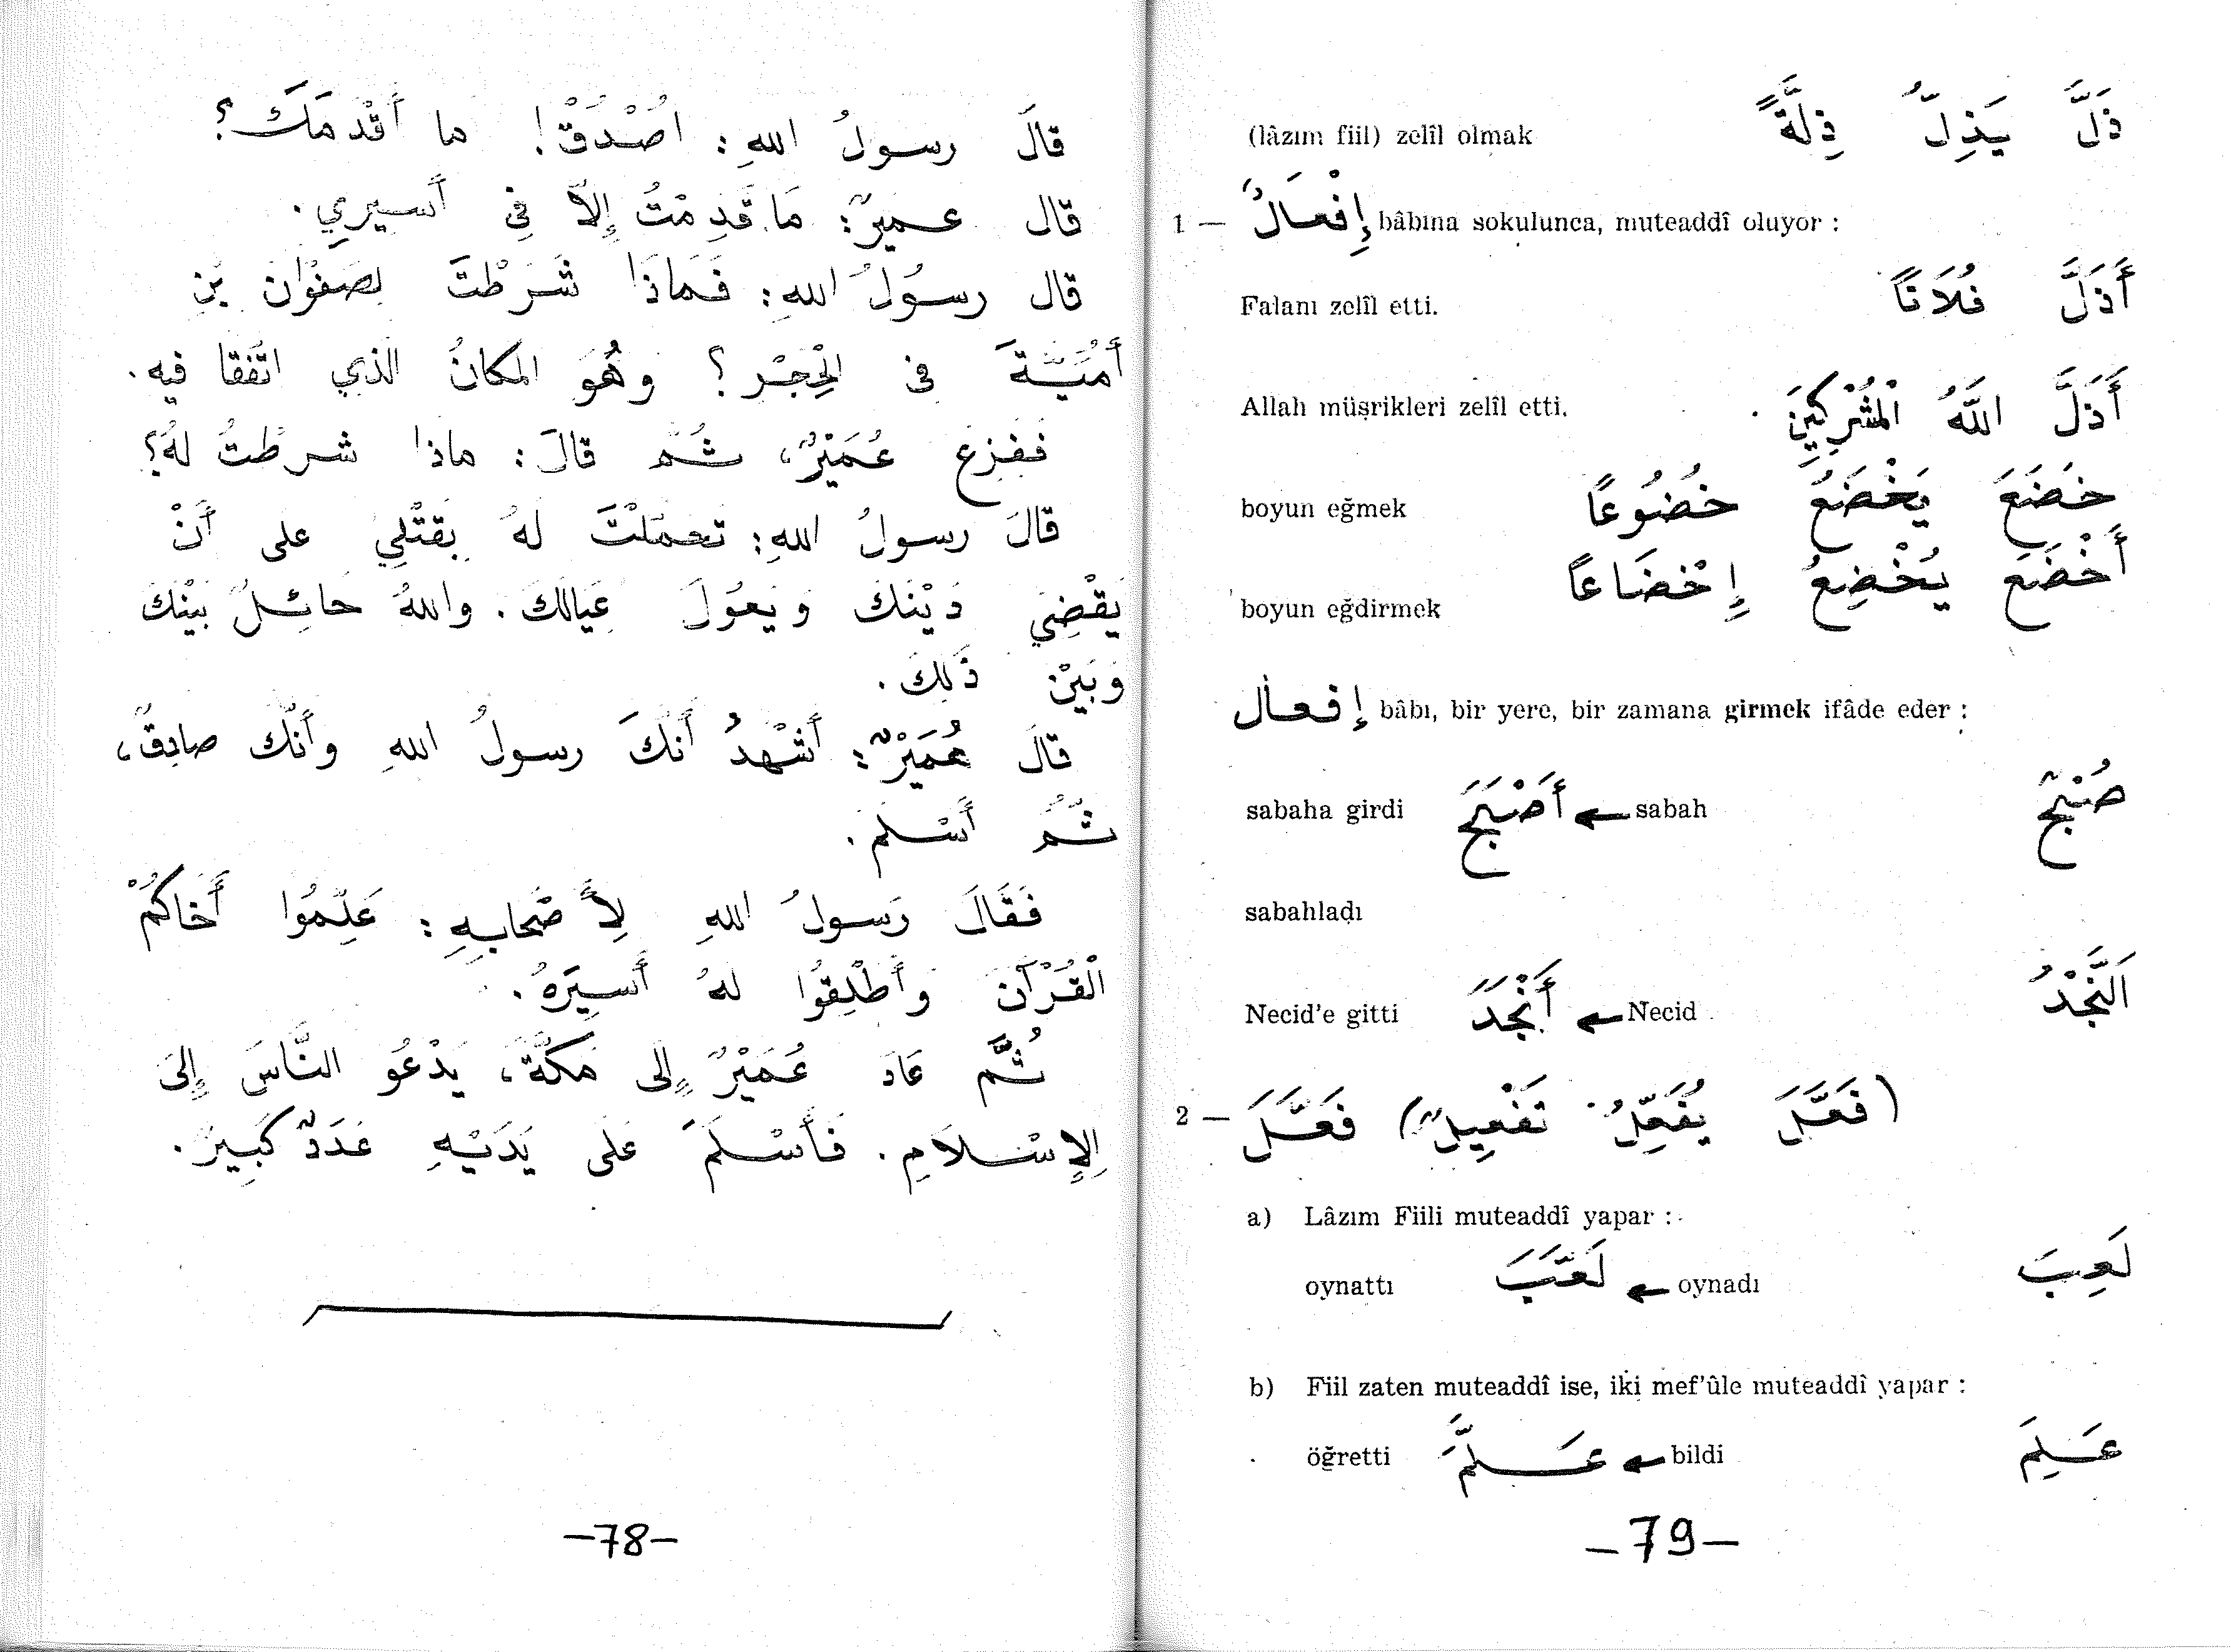 قالَ رسولُ اللهِ: اُصْدُقْ! ما أَقْدَمَكَ؟
قال عميرٌ: مَا قَدِمْتُ إِلاَّ فِي أَسيرِي.
قال رسُولُ اللهِ: فَمَاذَا شَرَطْتَ لِصَفْوَانَ بْنِ
أُمَيَّةَ في الْحِجْرِ؟ وهُوَ المكانُ الذي اتَّفَقَا فيه.
فَفَزِعَ عُمَيْرٌ، ثُمَّ قالَ: ماذا شرطْتُ لهُ؟
قالَ رسولُ اللهِ: تحمَّلْتَ لهُ بِقَتْلِي على أَنْ
يَقْضِيَ دَيْنَكَ وَيَعُولَ عِيَالَكَ. واللهُ حَائِلٌ بَيْنَكَ
وَبَيْنَ ذَلِكَ.
قالَ عُمَيْرٌ: أَشْهَدُ أَنَّكَ رسولُ اللهِ وأَنَّكَ صادِقٌ،
ثُمَّ أَسْلَمَ.
فَقَالَ رَسولُ اللهِ لِأَصْحَابِهِ: عَلِّمُوا أَخَاكُمْ
الْقُرْآنَ وَأَطْلِقُوا لهُ أَسيرَهُ.
ثُمَّ عَادَ عُمَيْرٌ إِلى مَكَّةَ، يَدْعُو النَّاسَ إِلىَ
الإِسْلاَمِ. فَأَسْلَمَ عَلى يَدَيْهِ عَدَدٌ كَبِيرٌ.
–78–
(lâzım fiil) zelîl olmak ذَلَّ يَذِلُّ ذِلَّةً
1 — إِفْعَالٌ bâbına sokulunca, muteaddî oluyor :
Falanı zelîl etti. أَذَلَّ فُلاَنًا
Allah müşrikleri zelîl etti. أَذَلَّ اللَّهُ الْمُشْرِكِينَ
boyun eğmek خَضَعَ يَخْضَعُ خُضُوعًا
boyun eğdirmek أَخْضَعَ يُخْضِعُ إِخْضَاعًا
إفعال bâbı, bir yere, bir zamana girmek ifâde eder :
sabaha girdi أَصْبَحَ ← sabah صُبْحٌ
sabahladı
Necid'e gitti أَنْجَدَ ← Necid اَلنَّجْدُ
2 — فَعَّلَ (فَعَّلَ يُفَعِّلُ تَفْعِيلٌ)
a) Lâzım Fiili muteaddî yapar :
oynattı لَعَّبَ ← oynadı لَعِبَ
b) Fiil zaten muteaddî ise, iki mef'ûle muteaddî yapar :
öğretti عَلَّمَ ← bildi عَلِمَ
–79–